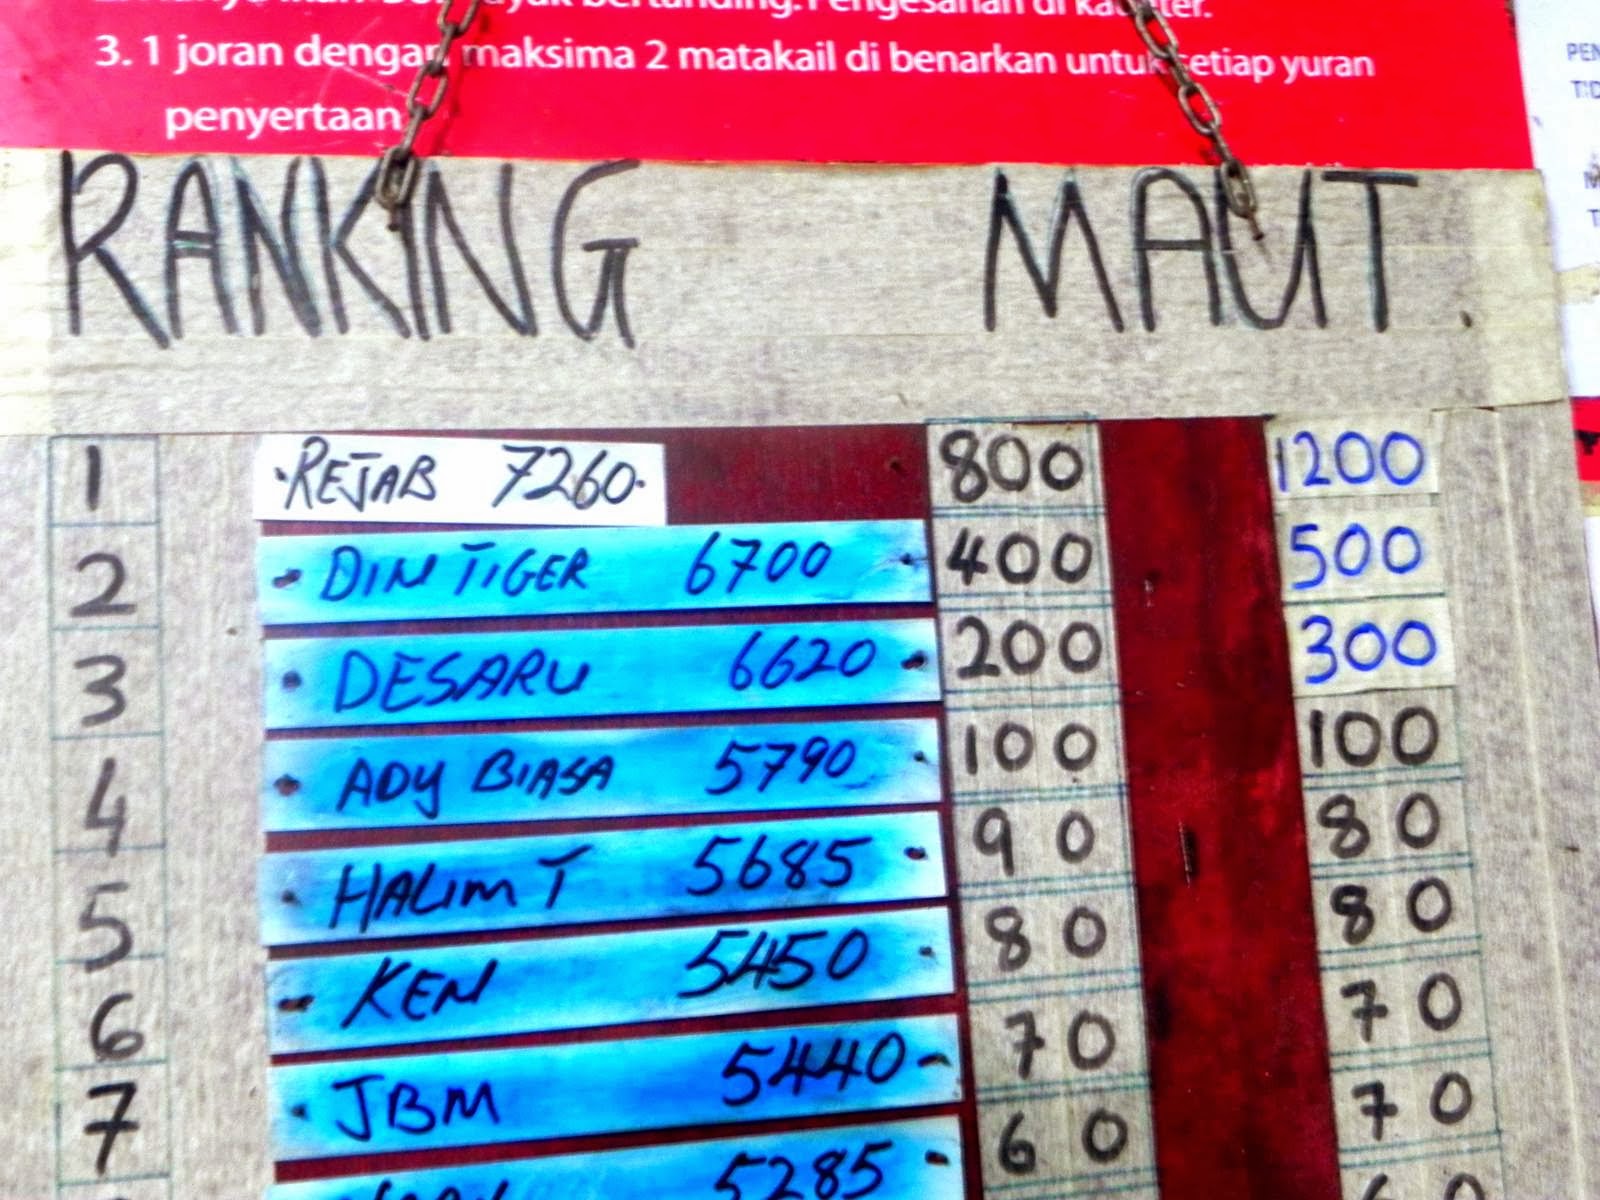 3. 1 joran dengan maksima 2 matakail di benarkan untuk setiap yuran
penyertaan
RANKING MAUT.
1 REJAB 7260 800 1200
2 DIN TIGER 6700 400 500
3 DESARU 6620 200 300
4 ADY BIASA 5790 100 100
5 HALIM T 5685 90 80
6 KEN 5450 80 80
7 JBM 5440 70 70
5285 60 70